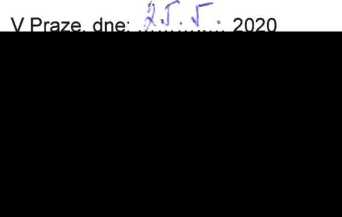 V Praze, dne: 25.5. 2020